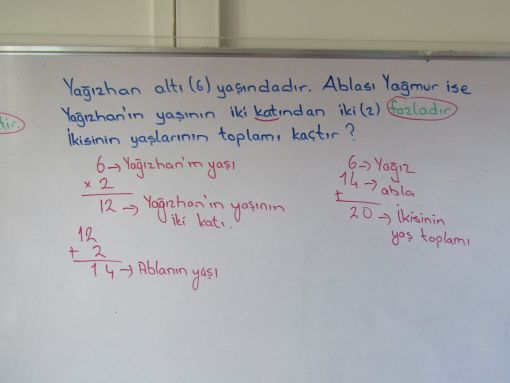 Yağızhan altı (6) yaşındadır. Ablası Yağmur ise
Yağızhan'ın yaşının iki katından iki (2) fazladır.
İkisinin yaşlarının toplamı kaçtır ?
tir.
6 → Yağızhan'ın yaşı
x 2
12 → Yağızhan'ın yaşının
iki katı.
12
+ 2
14 → Ablanın yaşı
6 → Yağız
14 → abla
+
20 → İkisinin
yaş toplamı